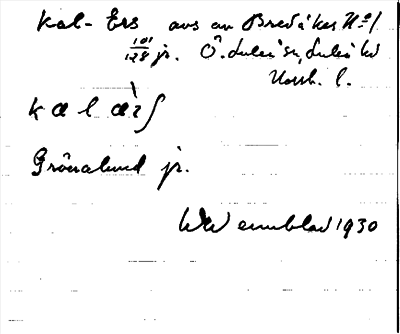 Kal-Ers avs av Bredåker No 1
101/128 jr. Ö. Luleå sn, Luleå hd
Norrb. l.
k a l æ̀ ʃ
Grönalund jr.
W Wennblad 1930